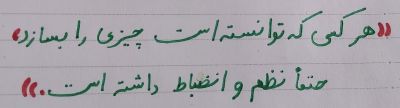 «هر کسی که توانسته است چیزی را بسازد،
حتماً نظم و انضباط داشته است.»